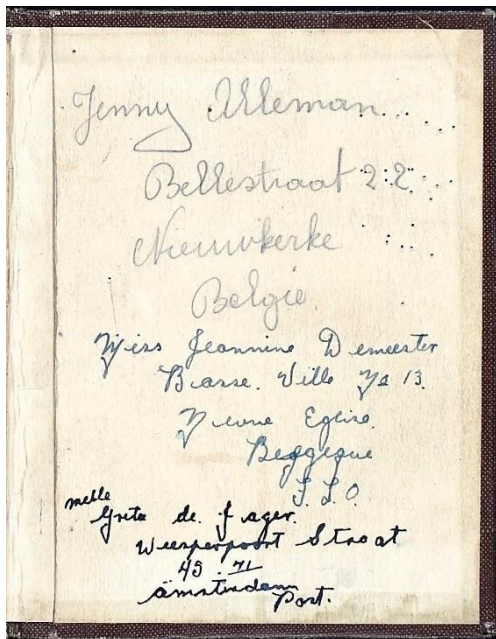 Jenny Alleman
Bellestraat 22
Nieuwkerke
Belgie
Miss Jeannine Demeester
Basse. Ville No 13.
Neuve Eglise.
Beggique
melle
Greta de Jager.
Weesperpoort Straat
49 71
amsterdam
Port.